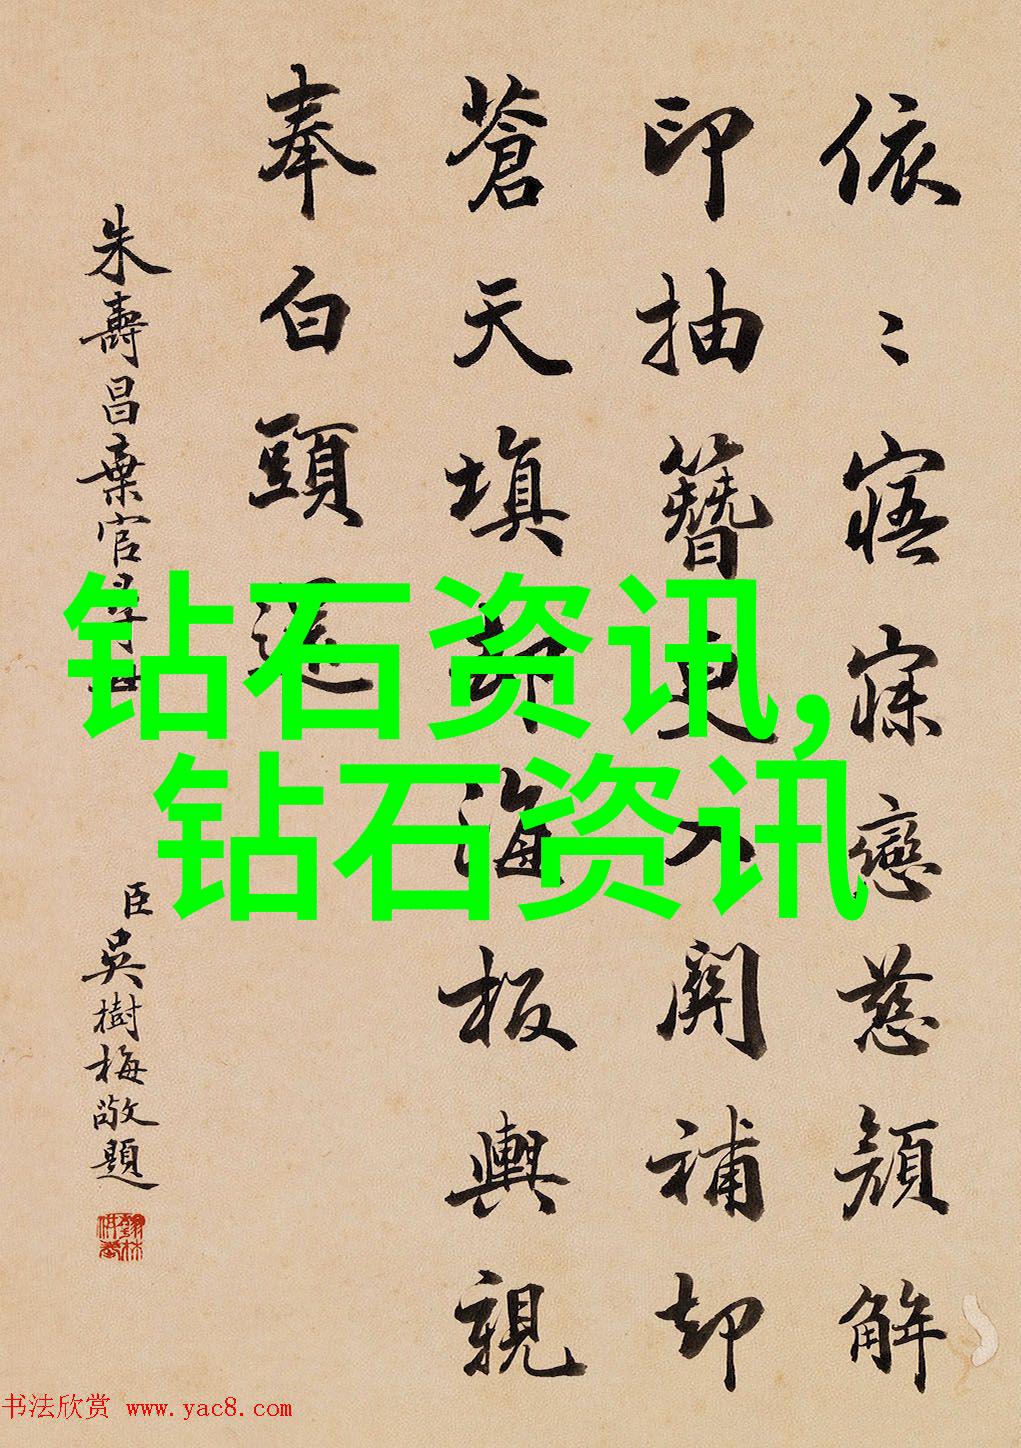 依〻寤寐戀慈顏解
印抽簪更入關補却
蒼天填却海板輿親
奉白頭還
朱壽昌棄官尋母
臣吳樹梅敬題
钻石资讯,
钻石资讯
书法欣赏 www.yac8.com